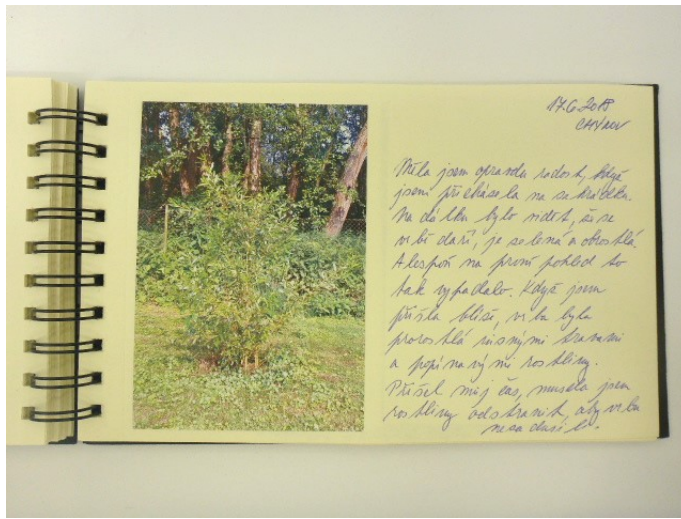 17.6.2018
CHVALY
Měla jsem opravdu radost, když
jsem přicházela na zahrádku.
Na dálku bylo vidět, že se
vrbě daří, je zelená a obrostlá.
Alespoň na první pohled to
tak vypadalo. Když jsem
přišla blíže, vrba byla
prorostlá různými travami
a popínavými rostliny.
Přišel můj čas, musela jsem
rostliny odstranit, aby vrba
nezadusili.